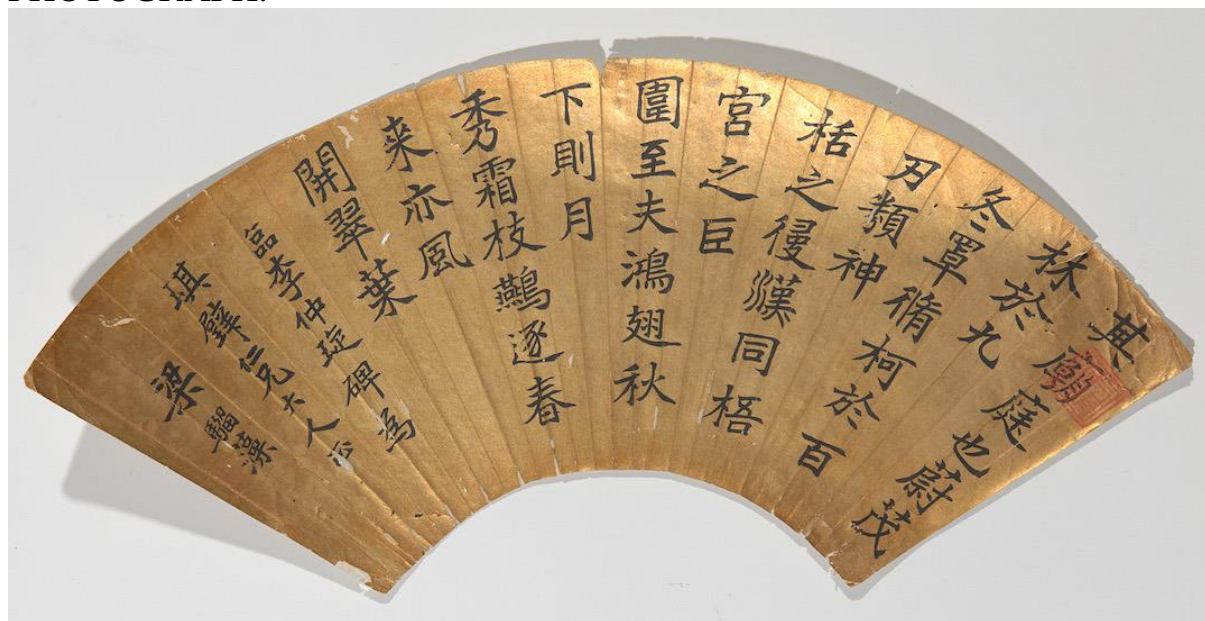 PHOTOGRAPH.
其廟庭也蔚茂
林於九
冬罩脩柯於百
刃類神
栝之復漢同梧
宮之巨
圍至夫鴻翅秋
下則月
秀霜枝鷰逐春
来亦風
開翠葉
臨李仲琁碑為
琪璧仁兄大人正
梁騮藻